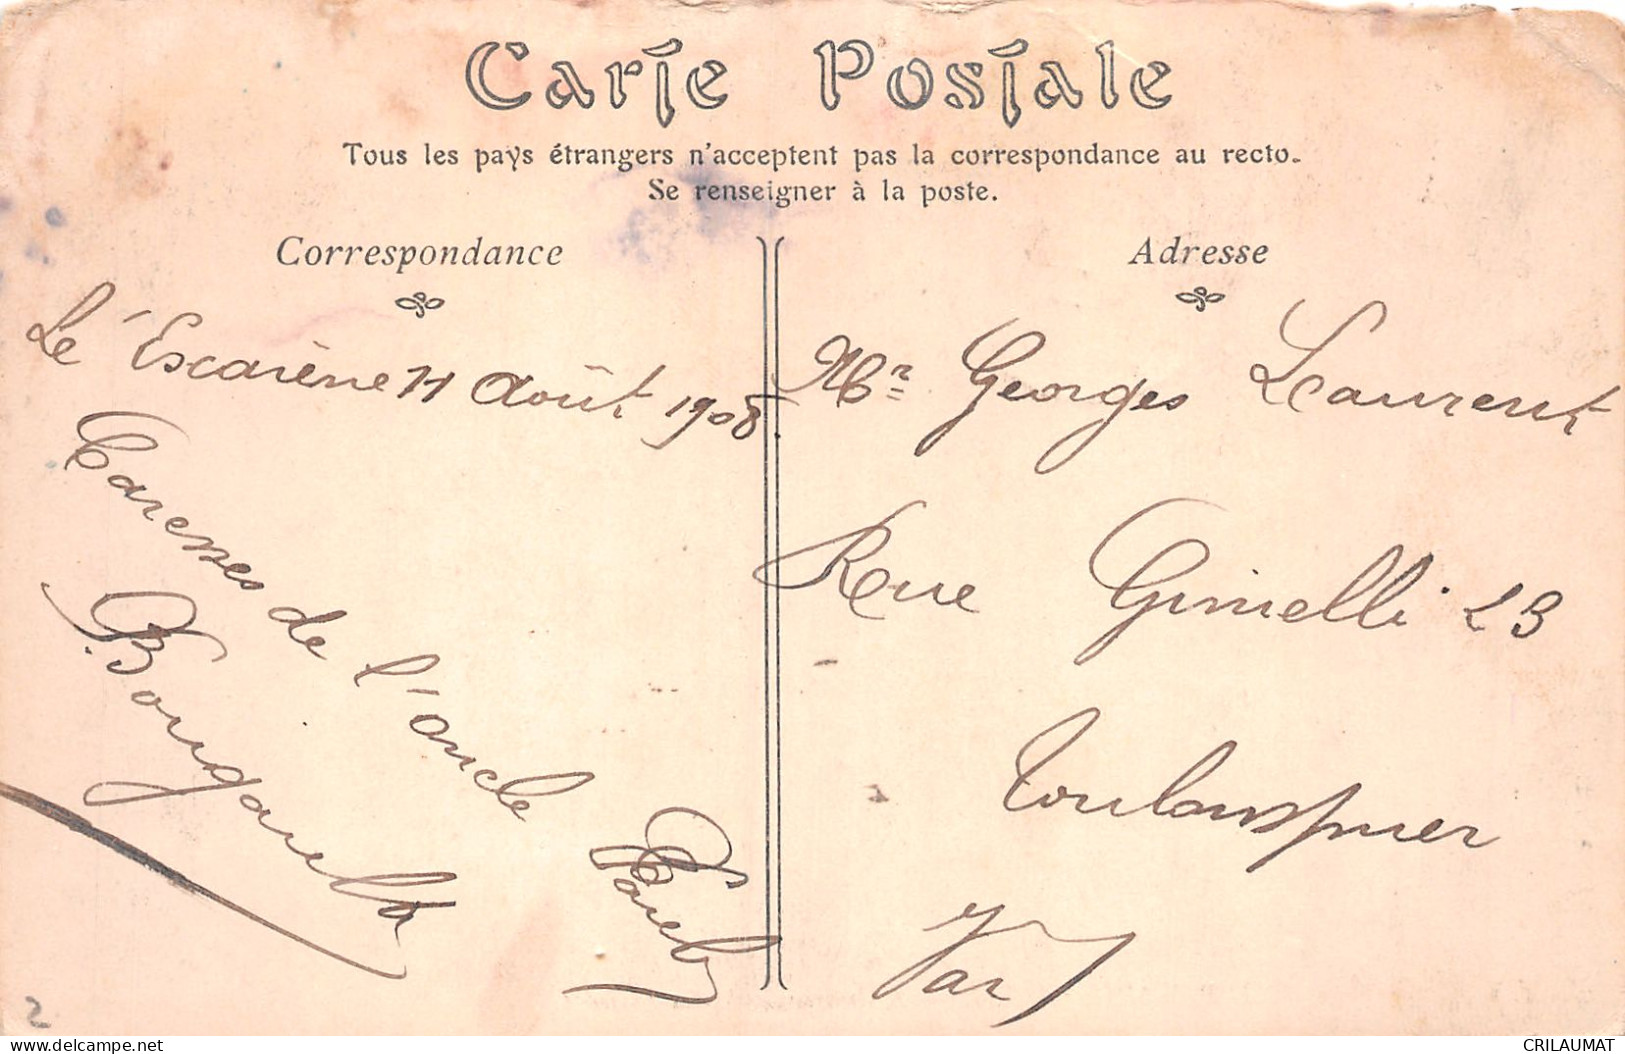 Carte Postale
Tous les pays étrangers n'acceptent pas la correspondance au recto.
Se renseigner à la poste.
Correspondance
Adresse
Le 'Escarène 11 Août 1908
Caresses de l'oncle Paul
Bougault
Mr Georges Laurent
Rue Gimelli 23
Toulon s/mer
Var
2
CRILAUMAT